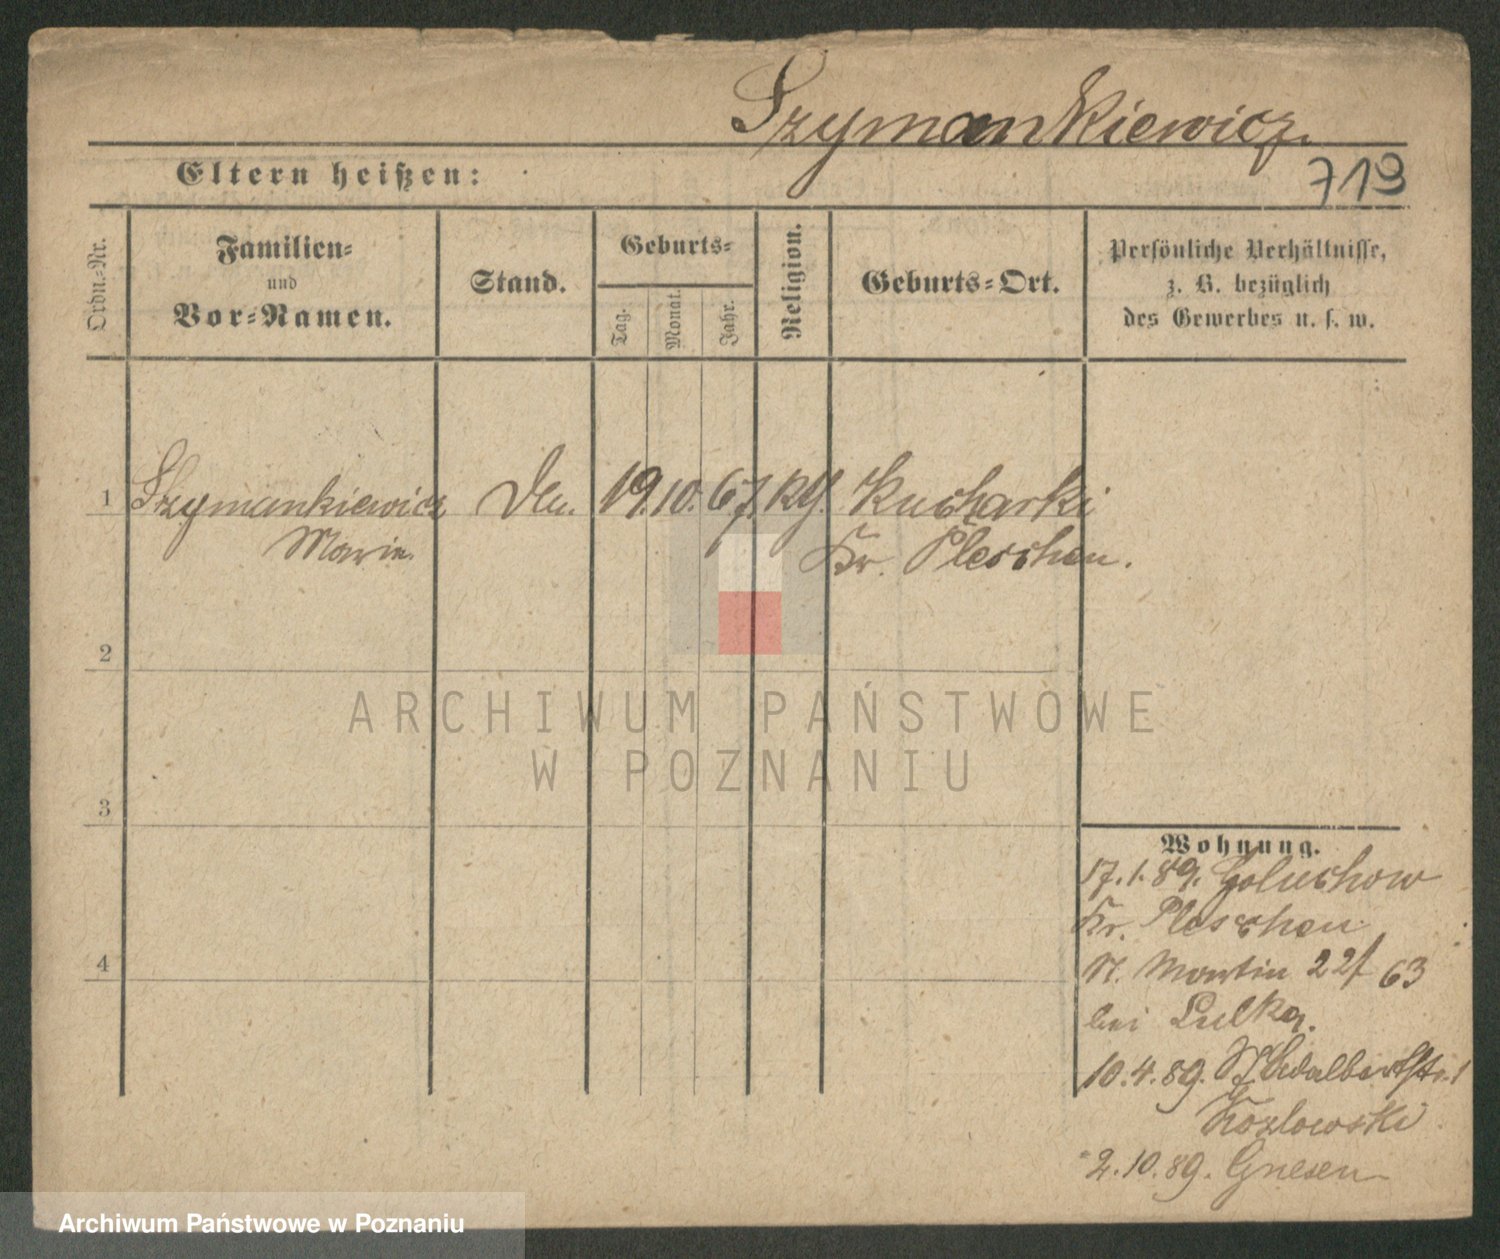 Szymankiewicz.
Eltern heißen:
713
Ordn.-Nr.
Familien-
und
Vor-Namen.
Stand.
Geburts-
Tag.
Monat.
Jahr.
Religion.
Geburts-Ort.
Persönliche Verhältnisse,
z. B. bezüglich
des Gewerbes u. s. w.
1 Szymankiewicz 19. 10. 67. Kucharki
Marie Kr. Pleschen.
2
3
4
Wohnung.
17.1.89. Goluchow
Kr. Pleschen
St. Martin 22/63
bei Lulka.
10.4.89. St. Adalbertstr. 1
Kozlowski
2.10.89. Gnesen
ARCHIWUM PAŃSTWOWE
W POZNANIU
Archiwum Państwowe w Poznaniu